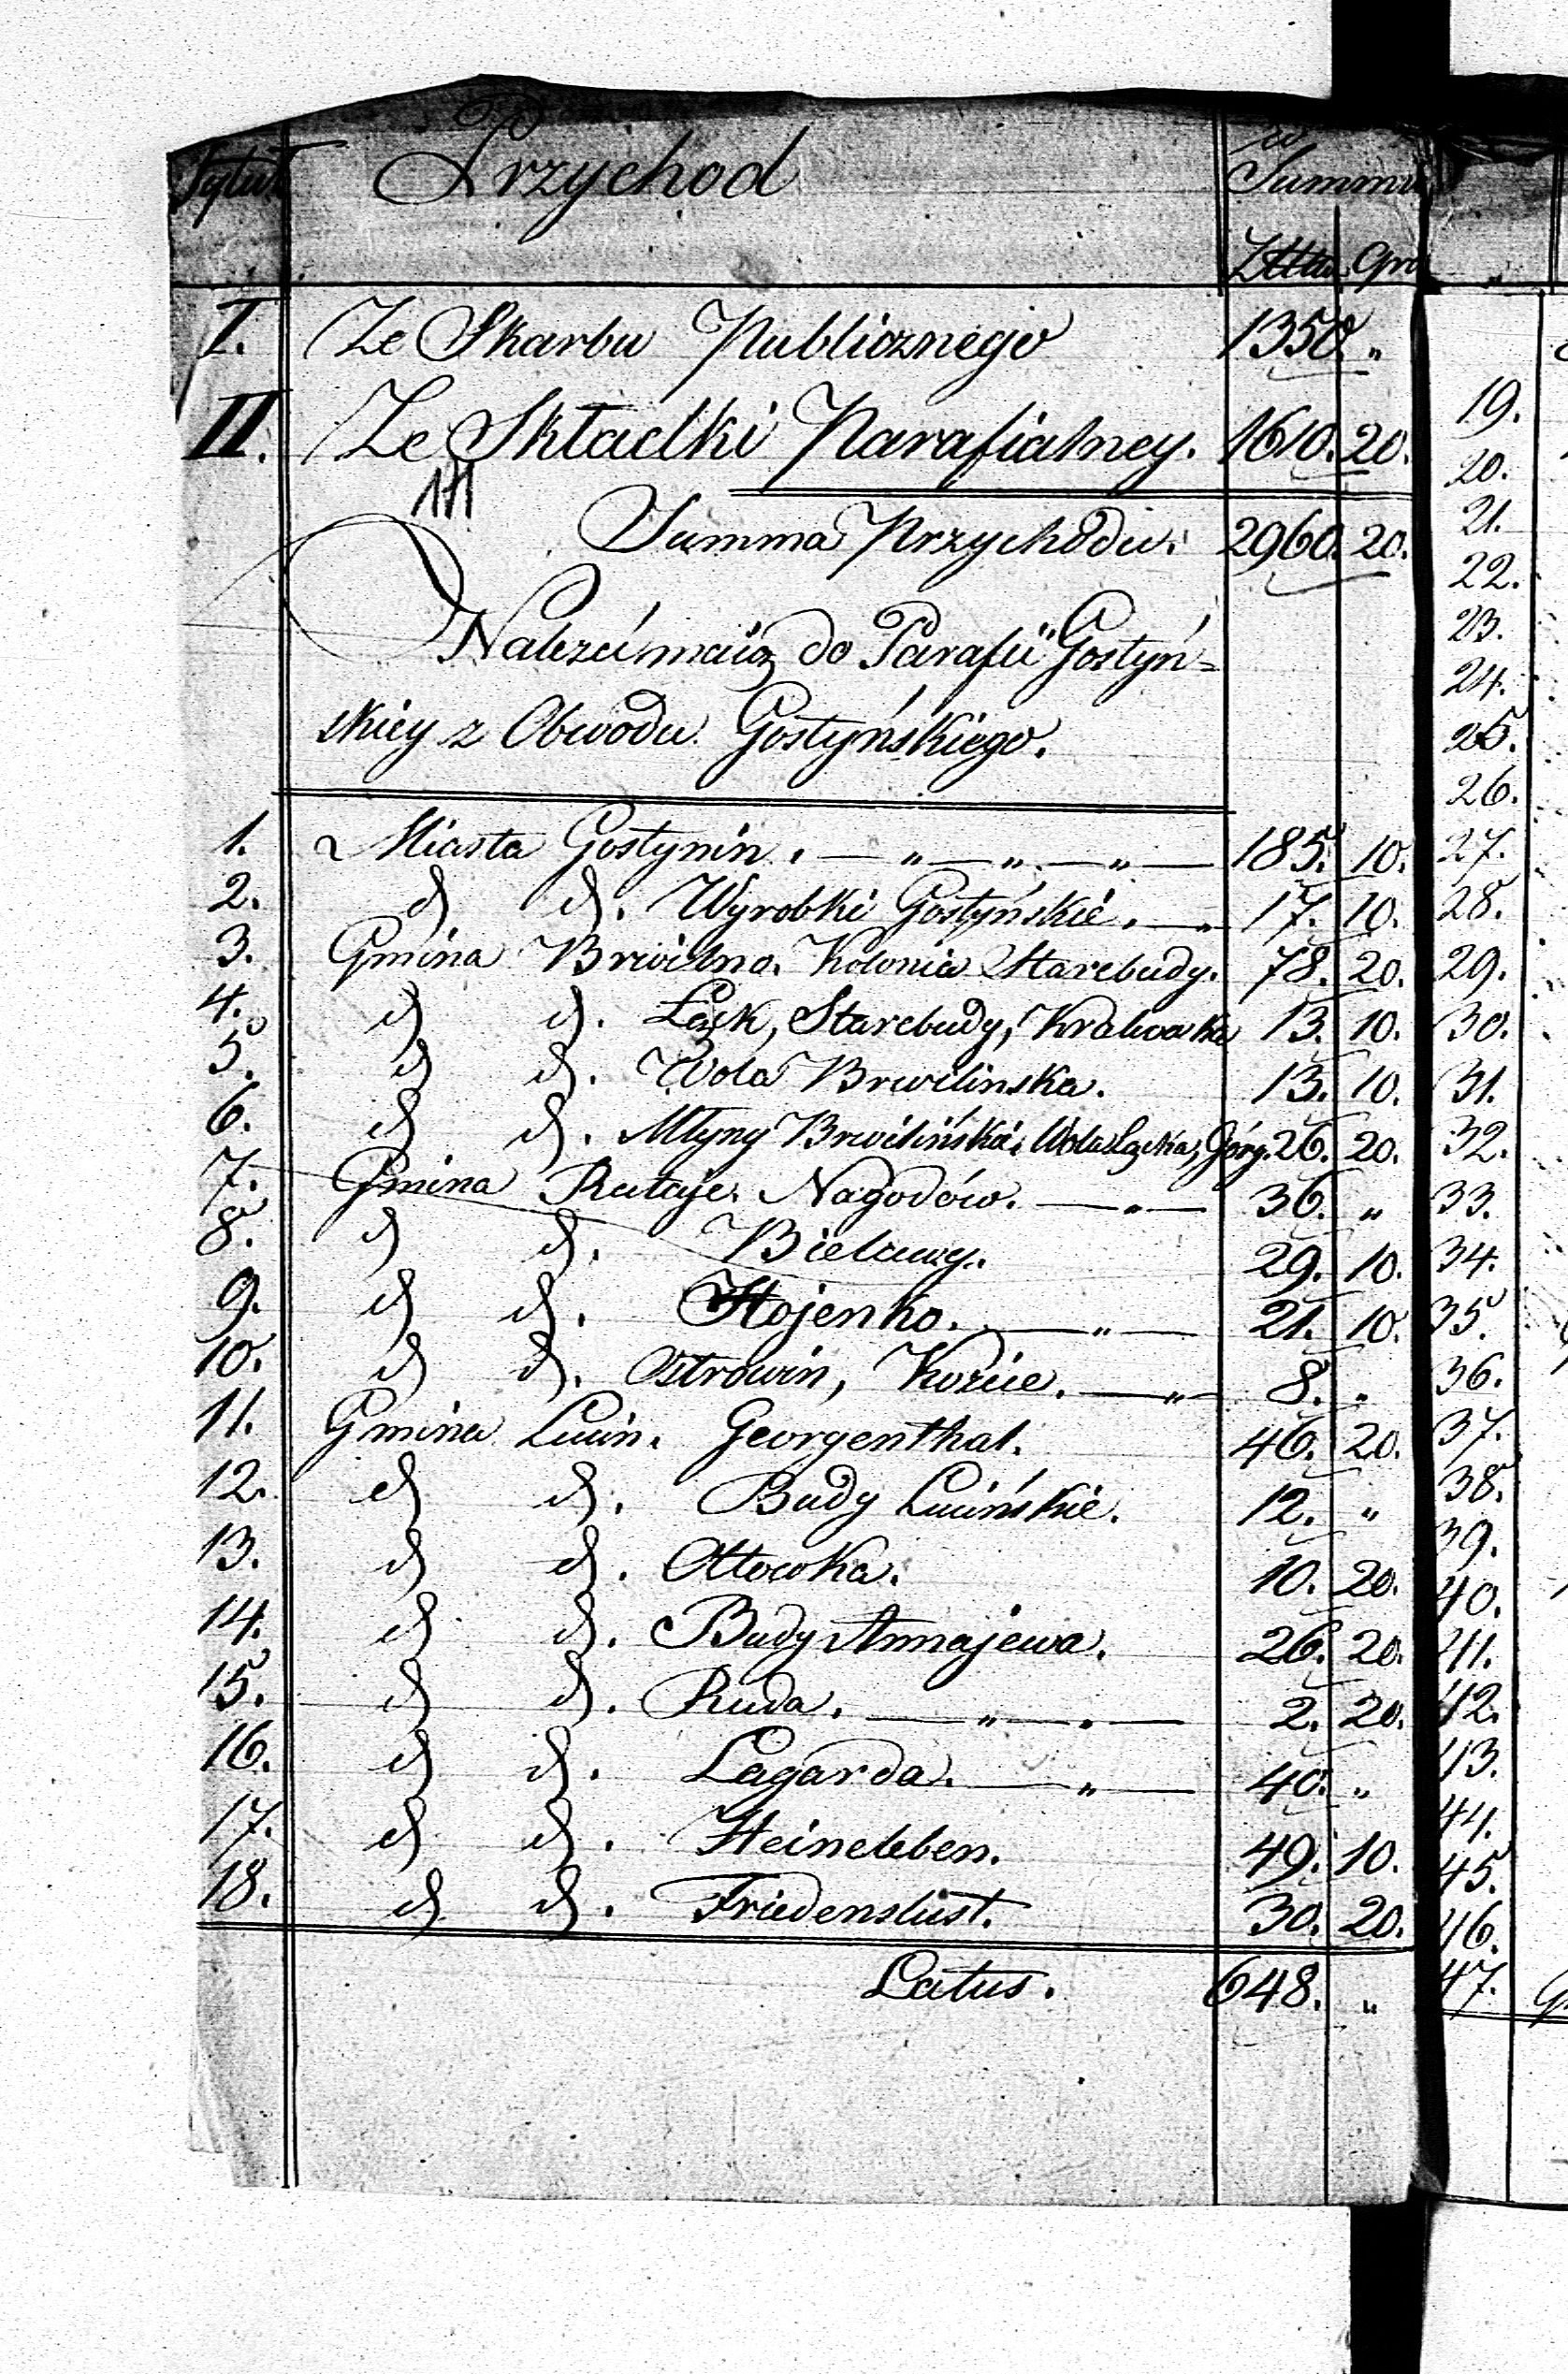 Tytuł Przychod w Summu
Złttu. Gro
I. Ze Skarbu Publicznego 1350. "
II. Ze Składki Parafialney. 1610. 20.
Summa Przychodu. 2960. 20.
do Parafii Gostyń=
skiey z Obwodu Gostyńskiego.
1. z Miasta Gostynin. — " — " — " — 185. 10.
2. d d. Wyrobki Gostyńskie. — " 17. 10.
3. Gmina Brwilno. Kolonia Starebudy. 78. 20.
4. d d. Łąck, Starebudy, 13. 10.
5. d d. Wola Brwilinska. 13. 10.
6. d d. Młyny Brwilińskie, Wola Łącka, Góry. 26. 20.
7. Gmina Rataje. Nagodów. — " — 36. "
8. d d. Bielawy. 29. 10.
9. d d. 21. 10.
10. d d. Ostrowin, Kozice. — " 8. "
11. Gmina Lucin. Georgenthal. 46. 20.
12. d d. Budy Lucińskie. 12. "
13. d d. Ottowka. 10. 20.
14. d d. Budy Annajewa. 26. 20.
15. d d. Ruda. — " — . — 2. 20.
16. d d. Lagarda. — " — 40. "
17. d d. Heineleben. 49. 10.
18. d d. Friedenslust. 30. 20.
Latus. 648. "
19.
20.
21.
22.
23.
24.
25.
26.
27.
28.
29.
30.
31.
32.
33.
34.
35.
36.
37.
38.
39.
40.
41.
42.
43.
44.
45.
46.
47.